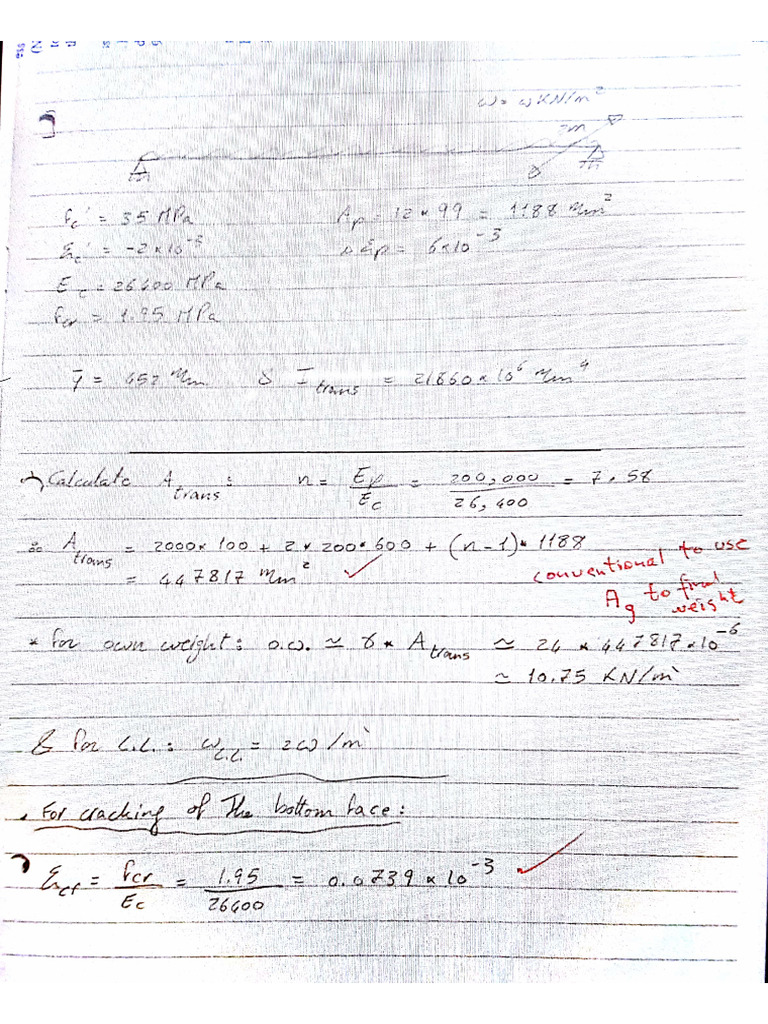 ω = ω KN/m²
2m
fc' = 35 MPa Ap = 12 * 99 = 1188 mm²
εc' = -2*10⁻³ Δεp = 6*10⁻³
Ec = 26400 MPa
fcr = 1.95 MPa
ȳ = 652 mm & I trans = 21860*10⁶ mm⁴
Calculate A trans : n = Ep/Ec = 200,000/26,400 = 7.58
∴ A trans = 2000*100 + 2*200*600 + (n-1)*1188
= 447817 mm² ✓
conventional to use
Ag to find
weight
* for own weight: o.w. ≃ γ * A trans ≃ 24 * 447817*10⁻⁶
≃ 10.75 KN/m'
& for L.L.: ω L.L. = 2ω /m'
. For cracking of The bottom face:
εcr = fcr/Ec = 1.95/26400 = 0.0739 * 10⁻³ ✓